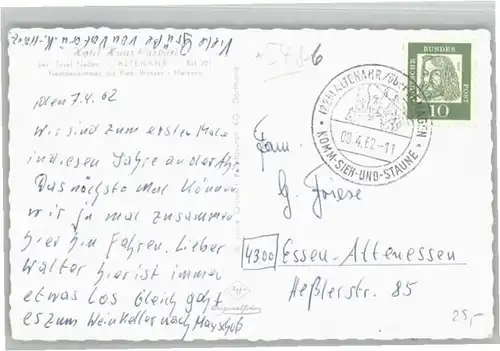 Viele Grüße von Vater u. K.-Heinz
Bes. Josef Nelles · ALTENAHR · Ruf 201
den 7.4.62
Wir sind zum ersten Male
in diesem Jahre an der Ahr
Das nächste Mal können
wir ja mal zusammen
hier hin fahren. Lieber
Walter hier ist immer
etwas los Gleich geht
es zum Weinkeller nach Mayschoß
DEUTSCHE BUNDESPOST
10
ALTENAHR
08.4.62-11
KOMM-SIEH-UND-STAUNE
Fam.
G. Friese
4300 Essen-Altenessen
Heßlerstr. 85
25,-